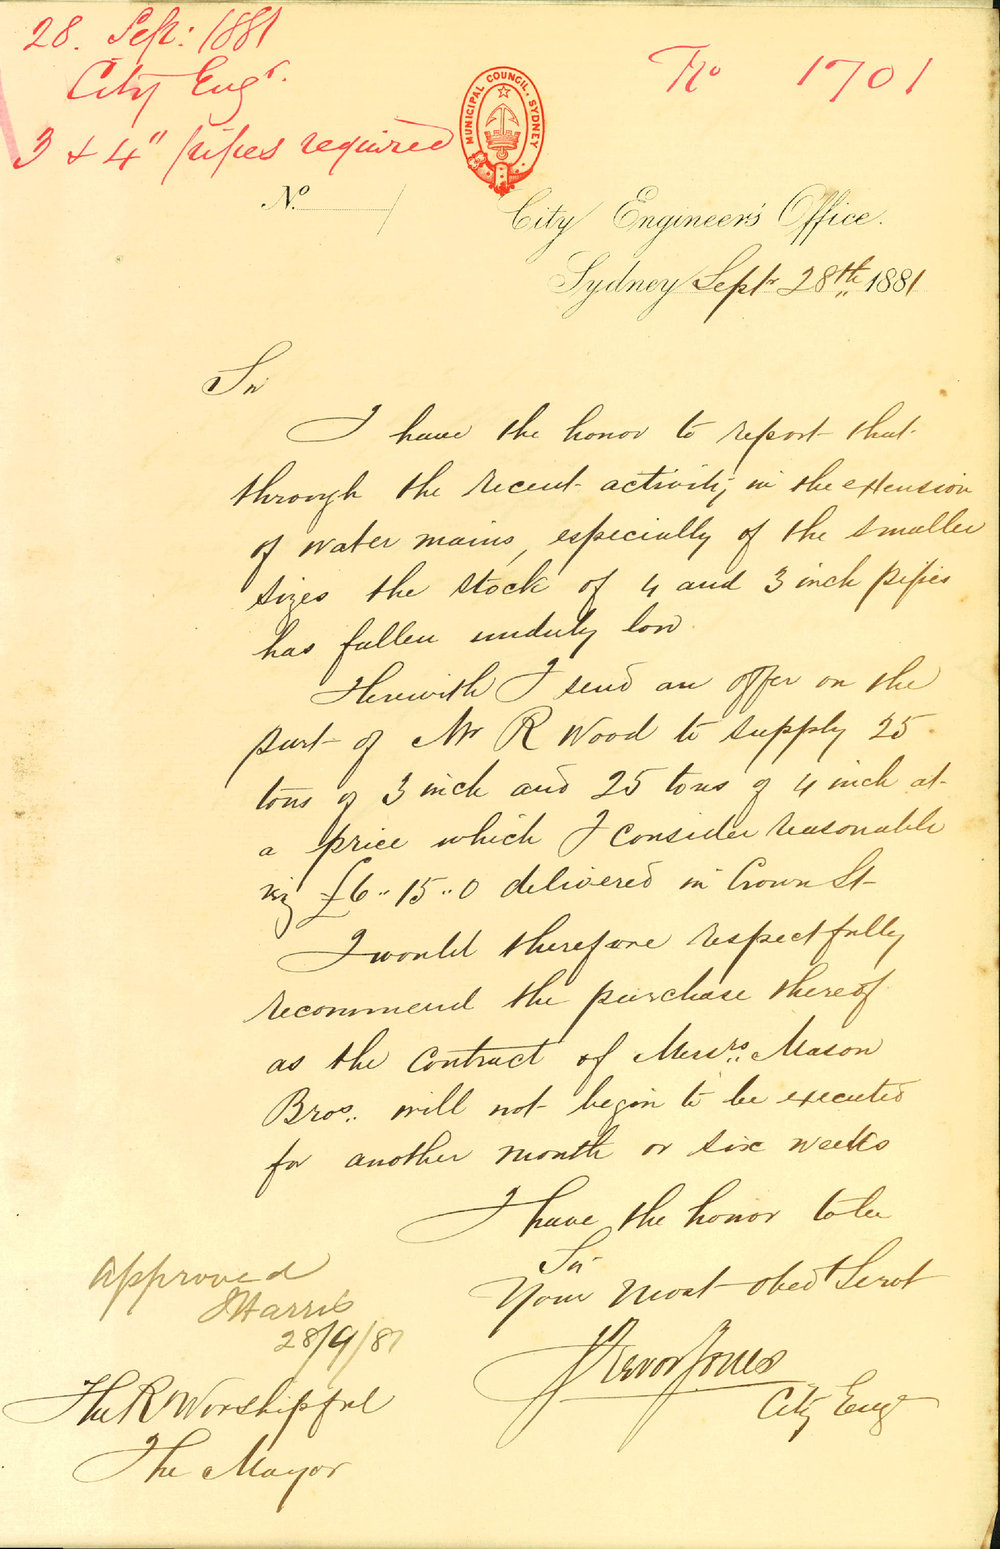 28. Sept: 1881
City Engr.
3 & 4" pipes required
No 1701
MUNICIPAL COUNCIL, SYDNEY
No.
City Engineer's Office.
Sydney Septr 28th 1881
Sir
I have the honor to report that
through the recent activity in the extension
of water mains, especially of the smaller
sizes the stock of 4 and 3 inch pipes
has fallen unduly low
Herewith I send an offer on the
part of Mr R Wood to supply 25
tons of 3 inch and 25 tons of 4 inch at
a price which I consider reasonable
viz £6..15..0 delivered in Crown St
I would therefore respectfully
recommend the purchase thereof
as the Contract of Messrs. Mason
Bros. will not begin to be executed
for another month or six weeks
I have the honor to be
Sir
Your most obedt Servt
J Trevor Jones
City Engr
Approved
J Harris
28/9/81
The R Worshipful
The Mayor